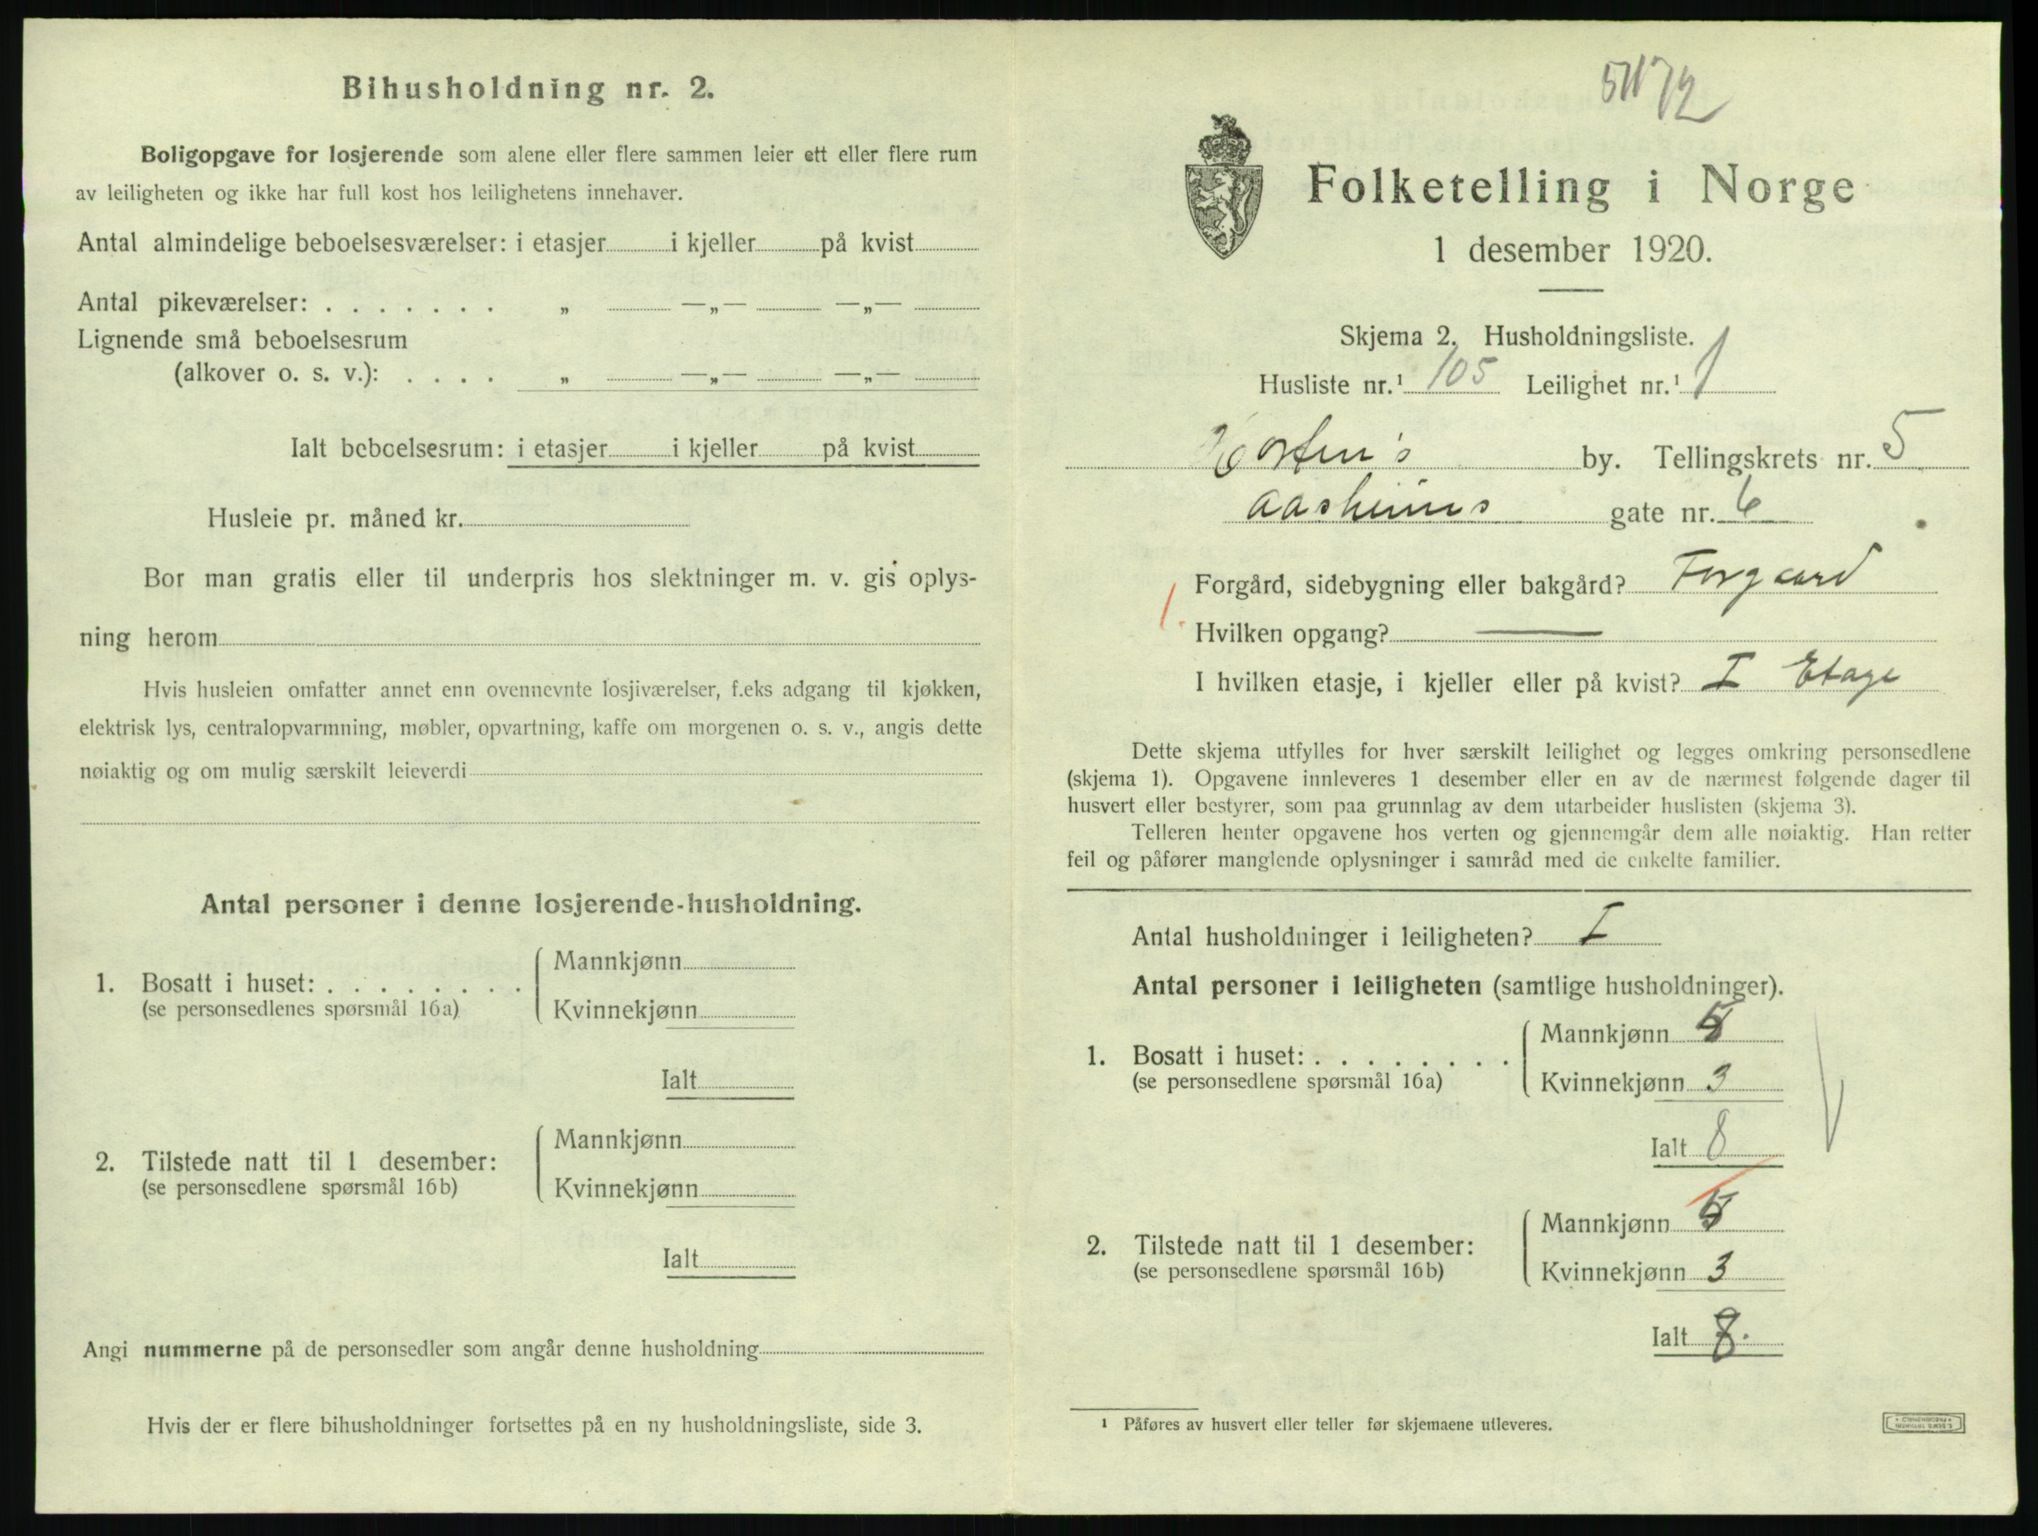 Bihusholdning nr. 2.
Boligopgave for losjerende som alene eller flere sammen leier ett eller flere rum
av leiligheten og ikke har full kost hos leilighetens innehaver.
Antal almindelige beboelsesværelser: i etasjer i kjeller på kvist
Antal pikeværelser: . . . . . . . „ —„— —„—
Lignende små beboelsesrum
(alkover o. s. v.): . . . . „ —„— —„—
Ialt beboelsesrum: i etasjer i kjeller på kvist
Husleie pr. måned kr.
Bor man gratis eller til underpris hos slektninger m. v. gis oplys-
ning herom
Hvis husleien omfatter annet enn ovennevnte losjiværelser, f.eks adgang til kjøkken,
elektrisk lys, centralopvarmning, møbler, opvartning, kaffe om morgenen o. s. v., angis dette
nøiaktig og om mulig særskilt leieverdi
Antal personer i denne losjerende-husholdning.
1. Bosatt i huset: . . . . . . . .
(se personsedlenes spørsmål 16a)
Mannkjønn
Kvinnekjønn
Ialt
2. Tilstede natt til 1 desember:
(se personsedlene spørsmål 16b)
Mannkjønn
Kvinnekjønn
Ialt
Angi nummerne på de personsedler som angår denne husholdning
Hvis der er flere bihusholdninger fortsettes på en ny husholdningsliste, side 3.
Folketelling i Norge
1 desember 1920.
Skjema 2. Husholdningsliste.
Husliste nr.¹ 105 Leilighet nr.¹ 1
Horten's by. Tellingskrets nr. 5
Aasheims gate nr. 6
Forgård, sidebygning eller bakgård? Forgaard
1.
Hvilken opgang? —
I hvilken etasje, i kjeller eller på kvist? I Etage
Dette skjema utfylles for hver særskilt leilighet og legges omkring personsedlene
(skjema 1). Opgavene innleveres 1 desember eller en av de nærmest følgende dager til
husvert eller bestyrer, som paa grunnlag av dem utarbeider huslisten (skjema 3).
Telleren henter opgavene hos verten og gjennemgår dem alle nøiaktig. Han retter
feil og påfører manglende oplysninger i samråd med de enkelte familier.
Antal husholdninger i leiligheten? I
Antal personer i leiligheten (samtlige husholdninger).
1. Bosatt i huset: . . . . . . . .
(se personsedlene spørsmål 16a)
Mannkjønn 5
Kvinnekjønn 3
Ialt 8
2. Tilstede natt til 1 desember:
(se personsedlene spørsmål 16b)
Mannkjønn 5
Kvinnekjønn 3
Ialt 8.
¹ Påføres av husvert eller teller før skjemaene utleveres.